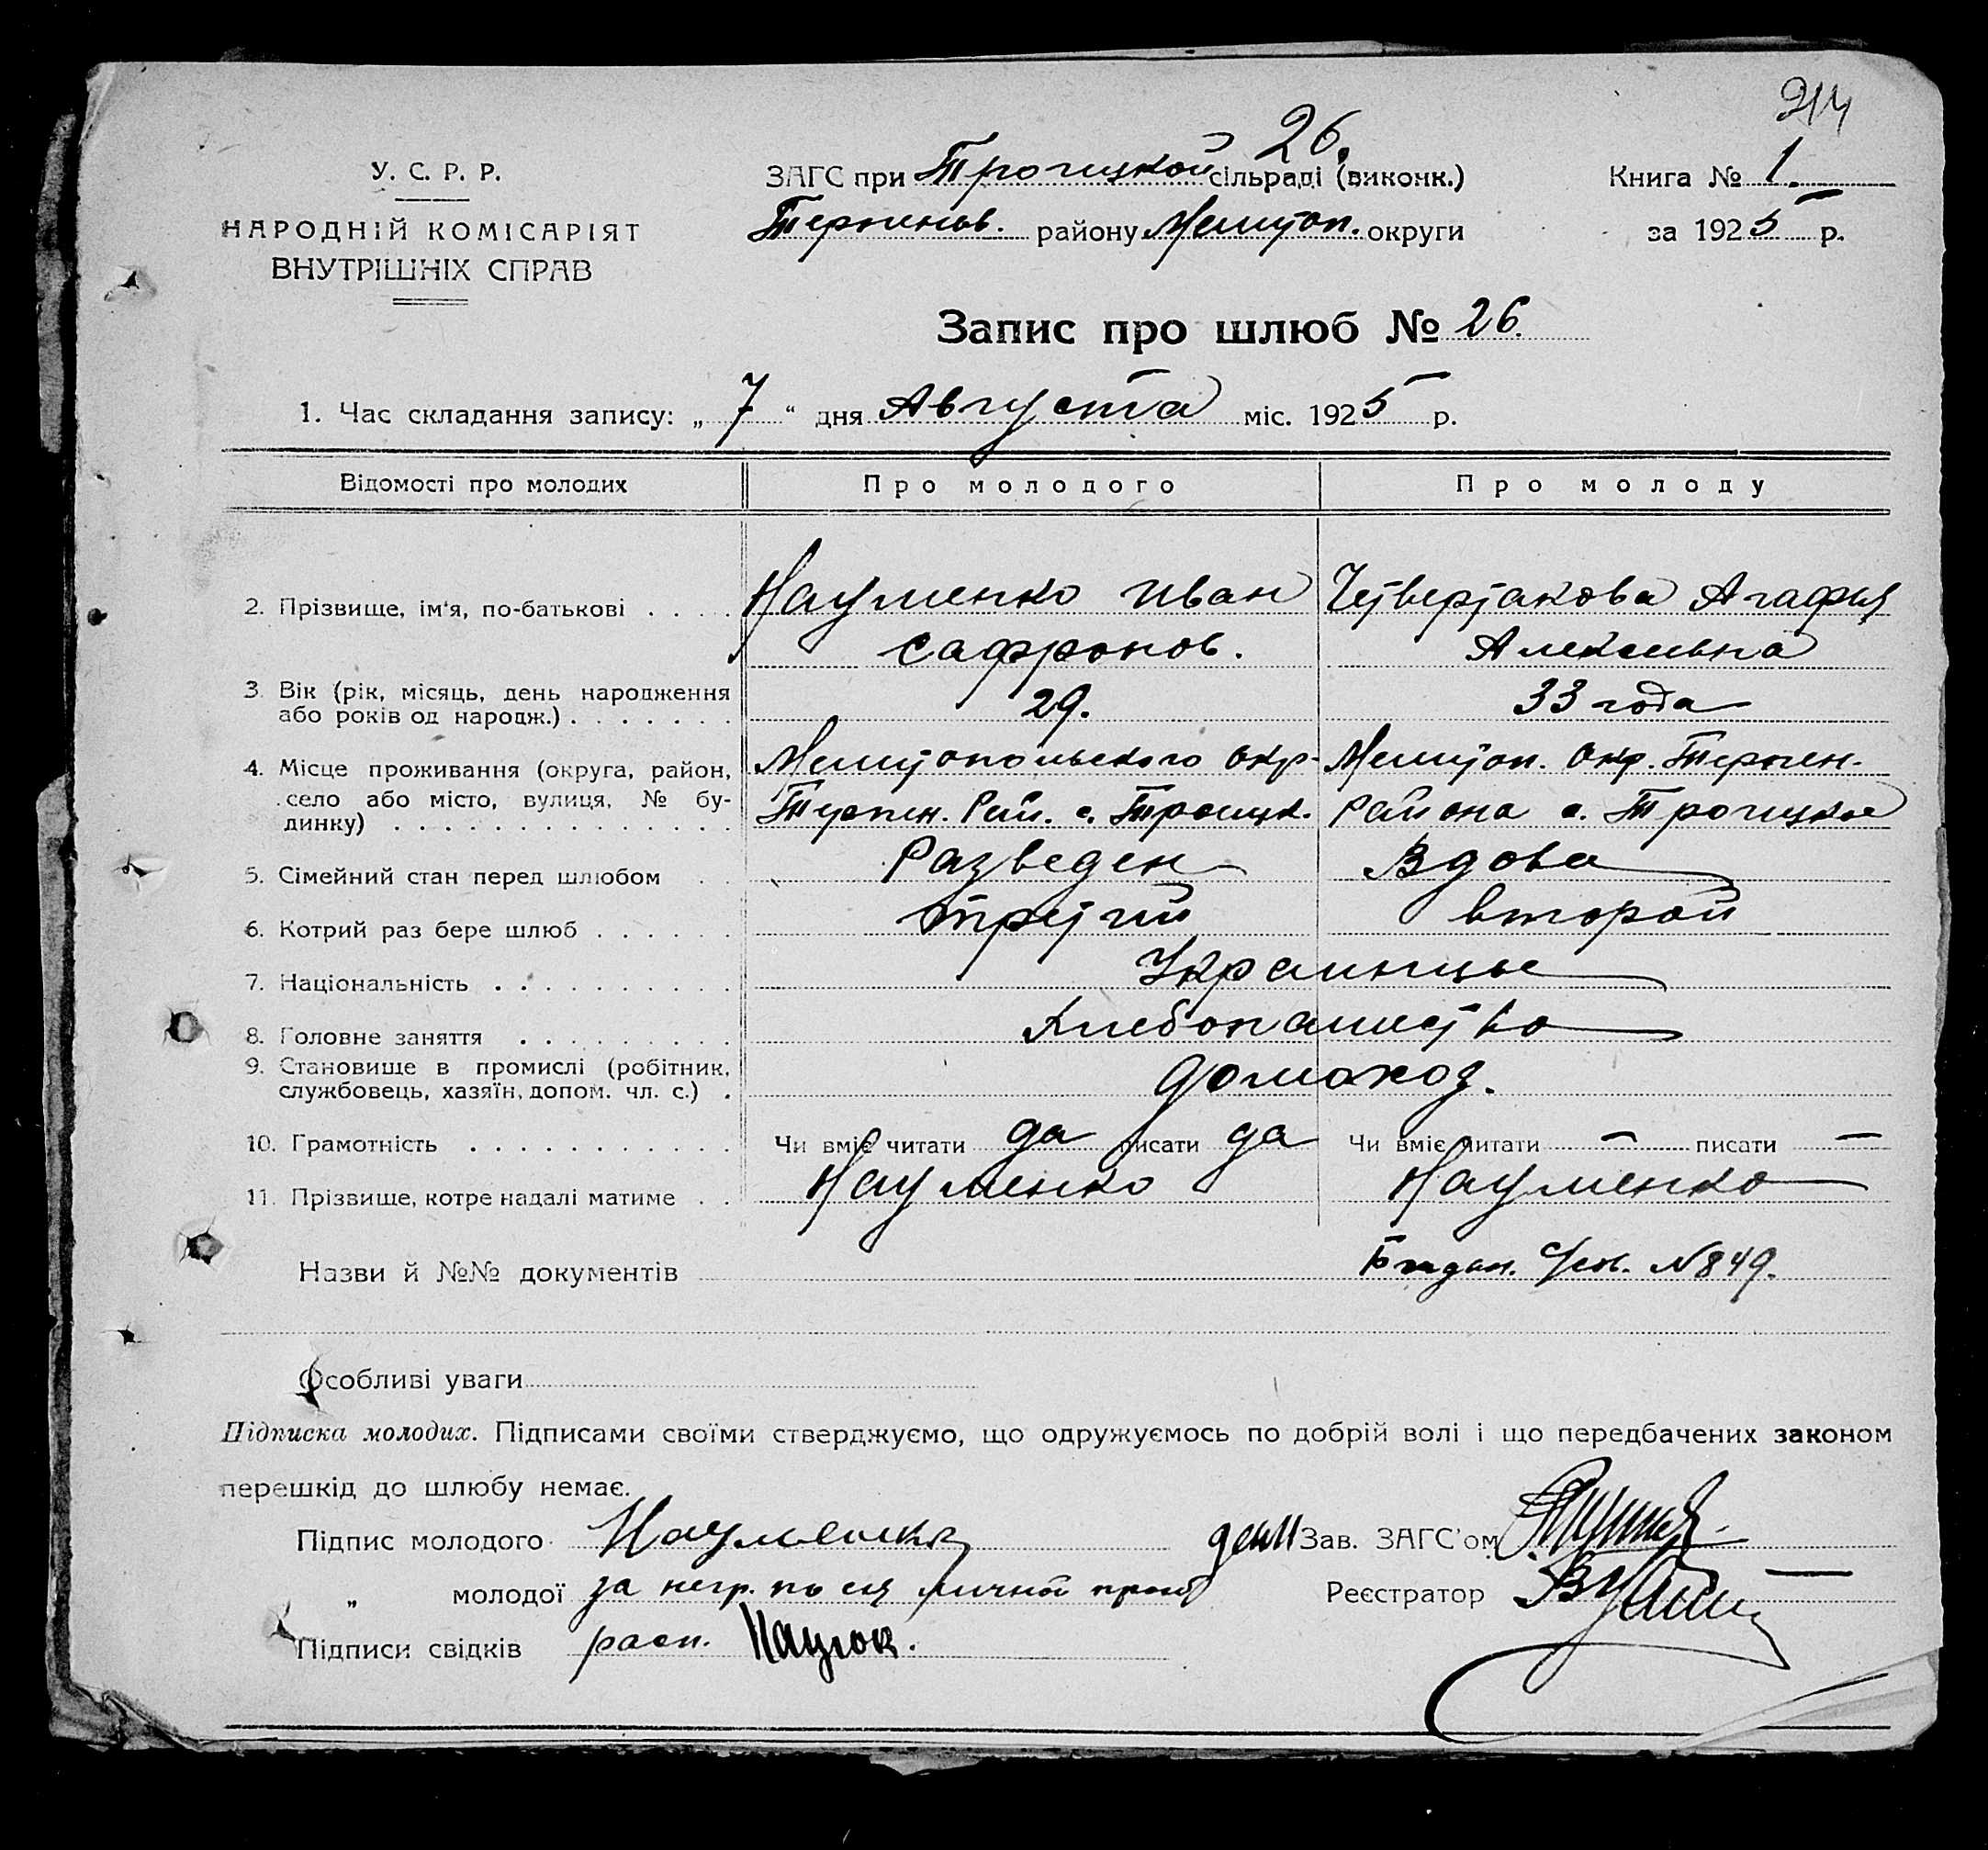 214
26.
У. С. Р. Р.
НАРОДНІЙ КОМІСАРІЯТ
ВНУТРІШНІХ СПРАВ
ЗАГС при Троицкой сільраді (виконк.)
Терпеньев. району Мелитоп. округи
Книга № 1.
за 1925 р.
Запис про шлюб № 26.
1. Час складання запису: „ 7 “ дня Августа міс. 1925 р.
Відомості про молодих Про молодого Про молоду
2. Прізвище, ім'я, по-батькові Науменко Иван Четвертакова Агафья
Сафронов. Алексеевна
3. Вік (рік, місяць, день народження
або років од народж.) 29. 33 года
4. Місце проживання (округа, район, Мелитопольского Окр. Мелитоп. Окр. Терпен.
село або місто, вулиця, № бу- Терпен. Рай. с. Троицк. Района с. Троицкое
динку)
5. Сімейний стан перед шлюбом Разведен Вдова
6. Котрий раз бере шлюб третий второй
7. Національність Украинцы
8. Головне заняття Хлебопашество
9. Становище в промислі (робітник,
службовець, хазяїн, допом. чл. с.) домохоз.
10. Грамотність Чи вміє читати да писати да Чи вміє читати — писати —
11. Прізвище, котре надалі матиме Науменко Науменко
Назви й №№ документів №849.
Особливі уваги
Підписка молодих. Підписами своїми стверджуємо, що одружуємось по добрій волі і що передбачених законом
перешкід до шлюбу немає.
Підпис молодого Науменко
Зав. ЗАГС'ом
„ молодої за негр. по ея личной прозб
Реєстратор
Підписи свідків расп.